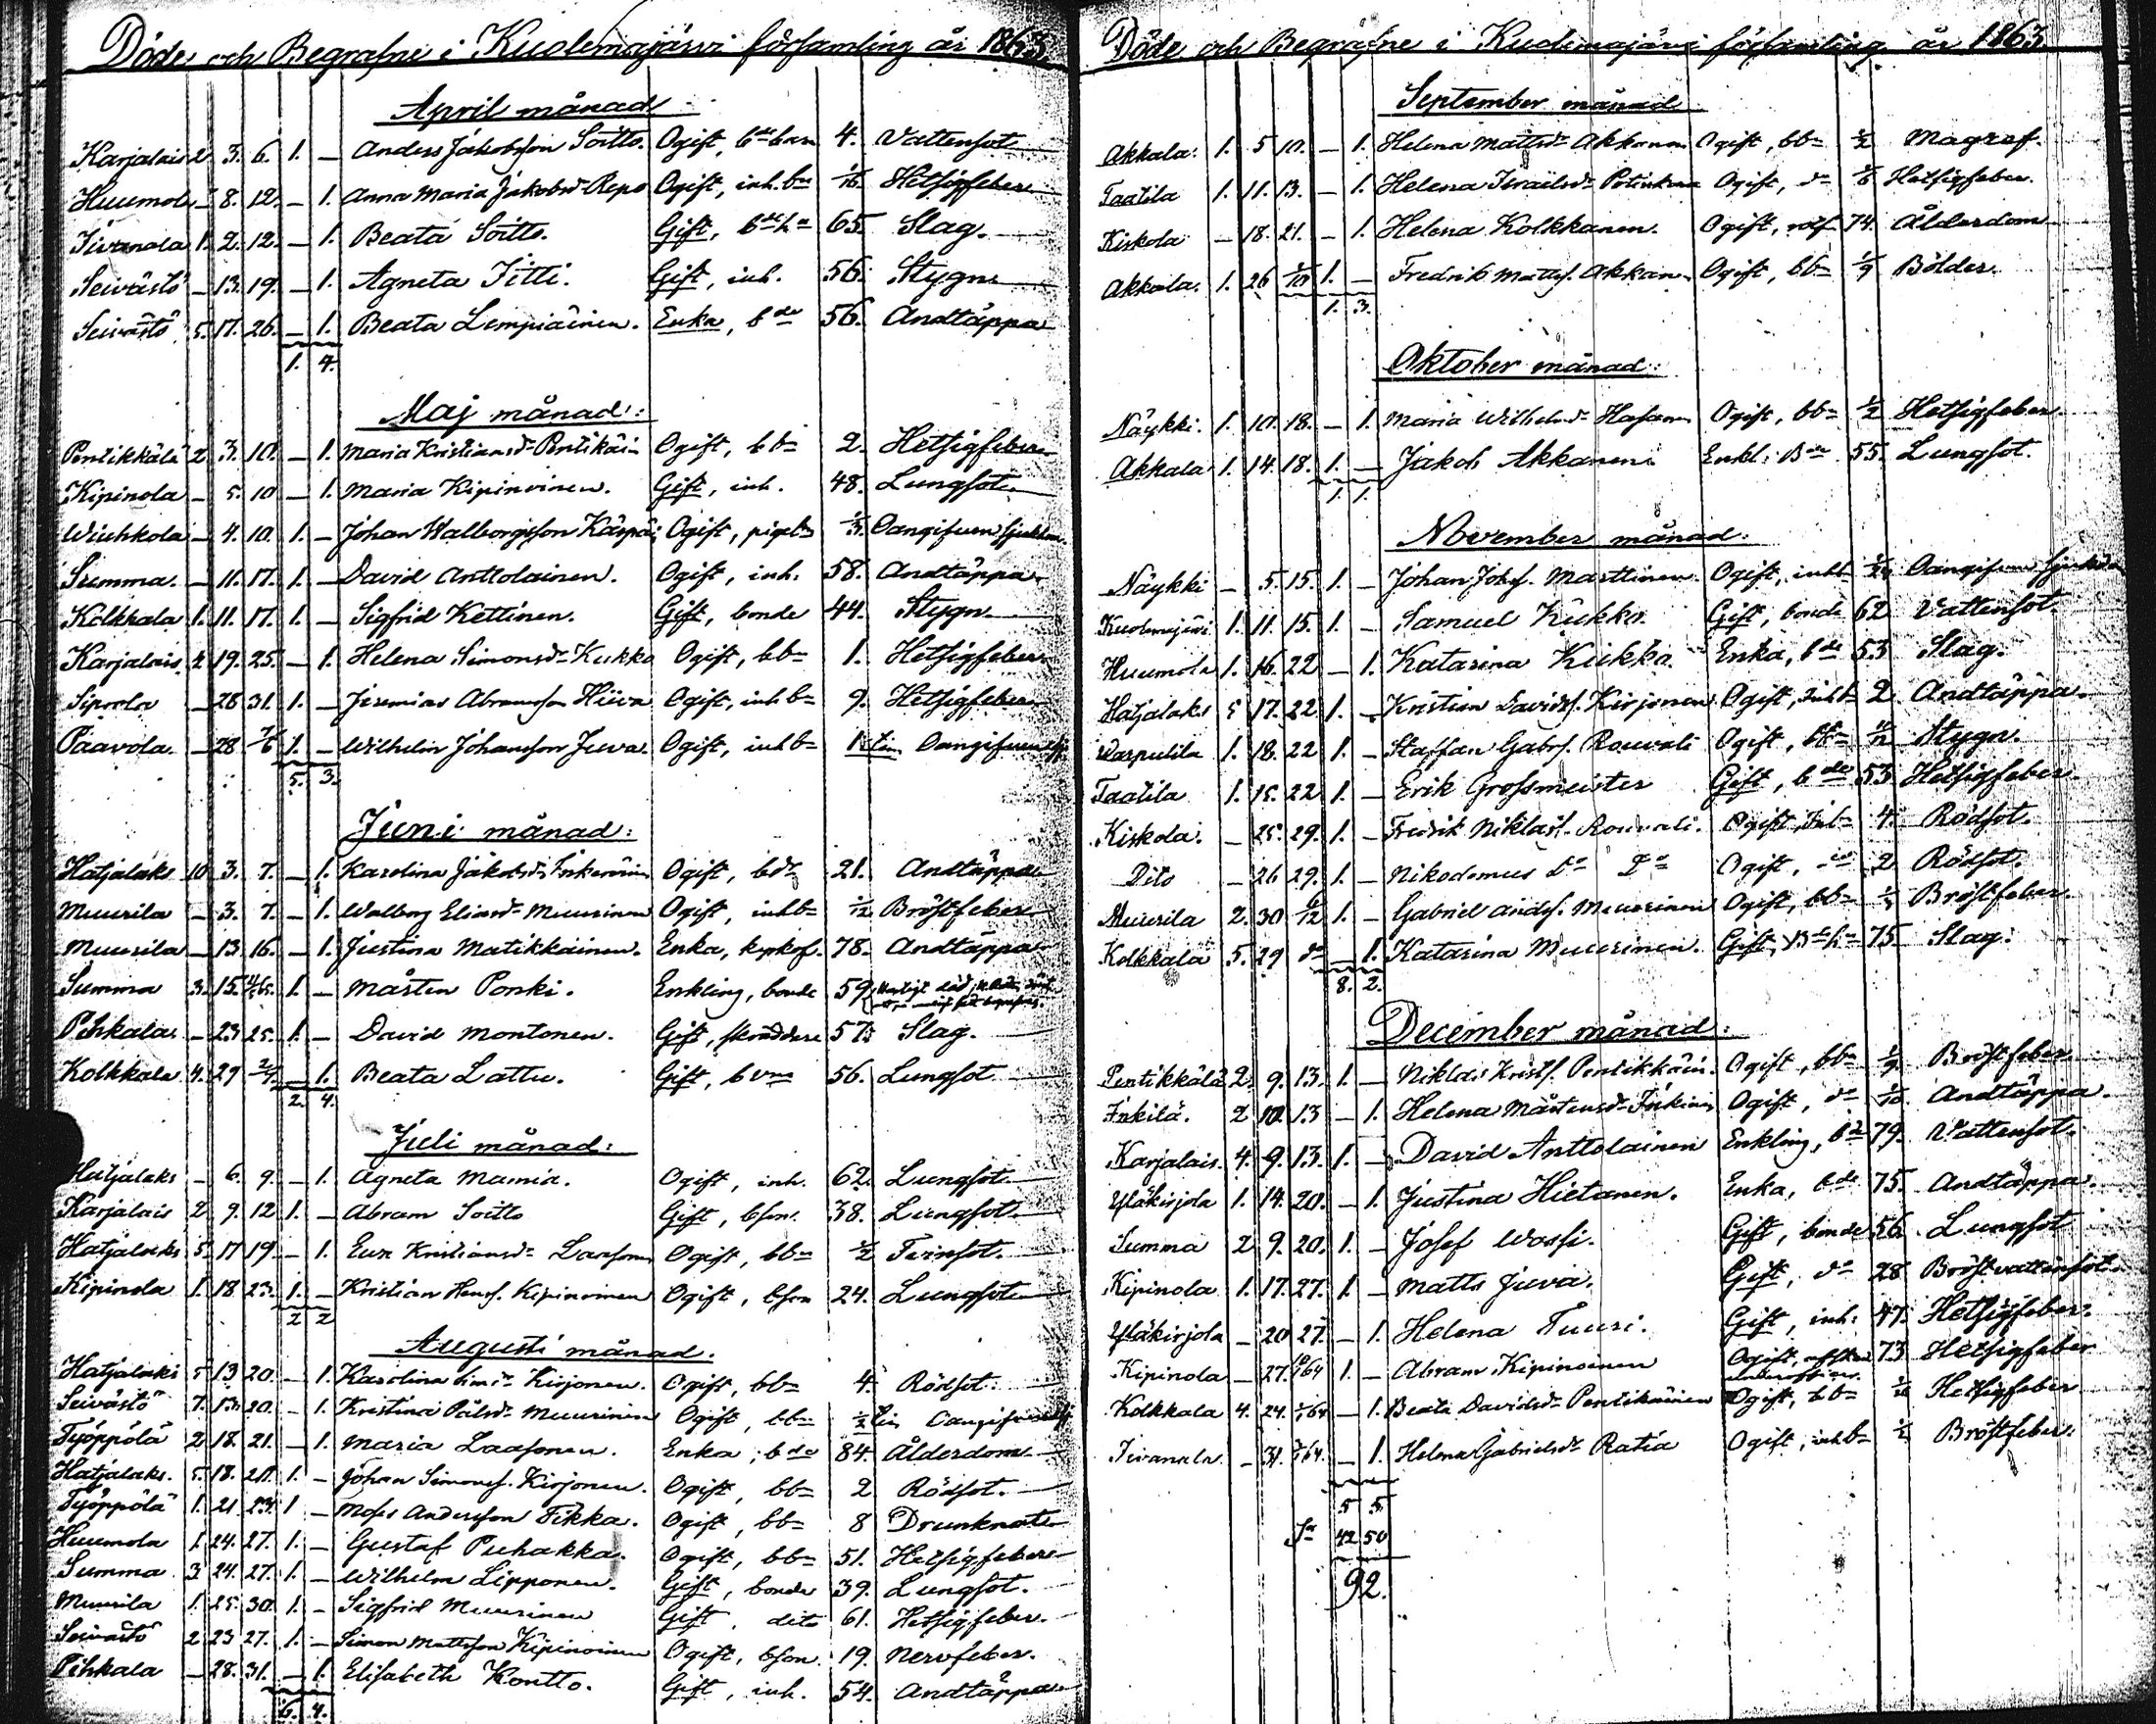 Döde och Begrafne i Kuolemajärvi församling år 1863.
April månad
Karjalais 2. 3. 6. 1. — Anders Jakobsson Soitto. Ogift, bde barn 4. Vattensot
Huumola — 8. 12. — 1. Anna Maria Jakobsdr Repo Ogift, inh. bn Hetsigfeber
Iivanala 1. 2. 12. — 1. Beata Soitto. Gift, bdeha 65. Slag.
Seivästö — 13. 19. — 1. Agneta Iitti. Gift, inh. 56. Stygn
Seivästö 5. 17. 26. — 1. Beata Lempiäinen. Enka, bde 56. Andtäppa
1. 4.
Maj månad:
Pentikkälä 2 3. 10. — 1. Maria Kristiansdr Pentikäin Ogift, bbn 2. Hetsigfeber
Kipinola — 5. 10 — 1. Maria Kipinoinen. Gift, inh. 48. Lungsot
Wiuhkola — 4. 10. 1. — Johan Walborgsson Ogift, pigeb 1/3 Oangifven sjukdom
Summa. — 11. 17. 1. — David Anttolainen. Ogift, inh. 58. Andtäppa
Kolkkala 1. 11. 17. 1. — Sigfrid Kettinen. Gift, bonde 44. Stygn
Karjalais. 4. 19. 25. — 1. Helena Simonsdr Kukko Ogift, bbn 1. Hetsigfeber
Sipola — 28 31. 1. — Jeremias Abramsson Hiiva Ogift, inh bn 9. Hetsigfeber
Paavola. — 28 7/6 1. — Wilhelm Johansson Juva. Ogift, inh bn 1 tim Oangifven
5. 3.
Juni månad:
Hatjalaks 10 3. 7. — 1. Karolina Jakobsdr Ogift, bdr 21. Andtäppa
Muurila — 3. 7. — 1. Walborg Eliasdr Muurinen Ogift, inhbn 1/12 Bröstfeber
Muurila — 13 16. — 1. Justina Matikkainen. Enka, 78. Andtäppa
Summa 3. 15. 1. — Mårten Ponki. Enkling, bonde 59.
Pihkala. — 23 25. 1. — David Montonen. Gift, skräddare 57. Slag.
Kolkkala 4. 29 — 1. Beata Lattu. Gift, 56. Lungsot
2. 4.
Juli månad:
Hatjalaks — 6. 9. — 1. Agneta Mamia. Ogift, inh. 62. Lungsot
Karjalais 2 9. 12 1. — Abram Soitto Gift, bson. 38. Lungsot
Hatjalaks 5. 17 19. — 1. Eva Kristiansdr Ogift, bbn 1/2
Kipinola 1. 18 23. 1. — Kristian Kipinoinen Ogift, bson 24. Lungsot
2 2
Augusti månad.
Hatjalaks 5 13 20. — 1. Karolina Kirjonen. Ogift, bbn 4. Rödsot.
Seivästö 7. 13. 20. — 1. Kristina Muurinen Ogift, bbn
Työppölä 2 18. 21. — 1. Maria Laasonen. Enka, bde 84. Ålderdom
Hatjalaks. 5. 18. 20. 1. — Johan Simonss. Kirjonen. Ogift, bbn 2 Rödsot.
Työppölä 1. 21. 23. 1 — Moses Andersson Tikka. Ogift, bbn 8 Drunknat
Huumola 1 24. 27. 1. — Gustaf Puhakka. Ogift, bbn 51. Hetsigfeber
Summa 3 24. 27. 1. — Wilhelm Lipponen. Gift, bonde 39. Lungsot.
Muurila 1. 25. 30. 1. — Sigfrid Muurinen Gift, dito 61. Hetsigfeber.
Seivästö 2 23 27. 1. — Simon Mattsson Kipinoinen Ogift, bson. 19. Nervfeber.
Pihkala — 28. 31. — 1. Elisabeth Kontto. Gift, inh. 54. Andtäppa
6. 4.
Döde och Begrafne i Kuolemajärvi församling år 1863
September månad
Akkala. 1. 5 10. — 1. Helena Mattsdr Akkanen Ogift, bbn 1/2 Magref.
Taatila 1. 11. 13. — 1. Helena Israelsdr Ogift, do Hetsigfeber.
Kiskola — 18. 21. — 1. Helena Kolkkanen. Ogift, 74. Ålderdom
Akkala. 1. 26 1/10 1. — Fredrik Mattss. Akkanen Ogift, bbn 1/9 Bölder.
1. 3.
Oktober månad:
Näykki. 1. 10. 18. — 1. Maria Wilhelmsdr Ogift, bbn 1/2 Hetsigfeber.
Akkala 1. 14. 18. 1. — Jakob Akkanen Enkl. Bde 55. Lungsot.
1. 1.
November månad:
Näykki — 5. 15. 1. — Johan Johss. Marttinen. Ogift, inhb Oangifven sjukdom
Kuolemajärvi 1. 11. 15. 1. — Samuel Kukko. Gift, bonde 62 Vattensot
Huumola 1. 16. 22 — 1. Katarina Kukko. Enka, bde 53 Slag.
Hatjalaks 5 17. 22 1. — Kristian Davidss. Kirjonen Ogift, inhb 2 Andtäppa
Warpulila 1. 18. 22 1. — Staffan Gabrs. Rouvali Ogift, bbn Stygn.
Taatila 1. 15. 22 1. — Erik Grossmeister Gift, bde 53. Hetsigfeber
Kiskola. — 25. 29. 1. — Fredrik Niklass. Rouvali. Ogift, 4. Rödsot.
Dito — 26 29. 1. — Nikodemus Do Do Ogift, do 2 Rödsot.
Muurila 2. 30 6/12 1. — Gabriel Anders. Muurinen Ogift, bbn Bröstfeber.
Kolkkala 5. 29 do — 1. Katarina Muurinen. Gift, Bdeha 75. Slag.
8. 2.
December månad:
Pentikkälä 2. 9. 13. 1. — Niklas Kristss. Pentikkäin. Ogift, bbn 1/9 Bröstfeber
Inkilä. 2 10. 13 — 1. Helena Mårtensdr Inkinen Ogift, do 1/10 Andtäppa.
Karjalais. 4. 9. 13. 1. — David Anttolainen Enkling, bde 79. Vattensot.
Yläkirjola 1. 14. 20. — 1. Justina Hietanen. Enka, bde 75. Andtäppa.
Summa 2 9. 20. 1. — Josef Wossi. Gift, bonde 56. Lungsot
Kipinola 1. 17. 27. 1. — Matts Juva. Gift, do 28 Bröstvattensot
Yläkirjola — 20 27. — 1. Helena Tuuri. Gift, inh. 47. Hetsigfeber.
Kipinola — 27. 1. — Abram Kipinoinen Ogift, 73 Hetsigfeber
Kolkkala 4. 24. — 1. Beata Davidsdr Pentikäinen Ogift, bbn Hetsigfeber
Iivanala — 31. — 1. Helena Gabrielsdr Ratia Ogift, inhbn 1/2 Bröstfeber.
5 5.
Sa 42 50
92.